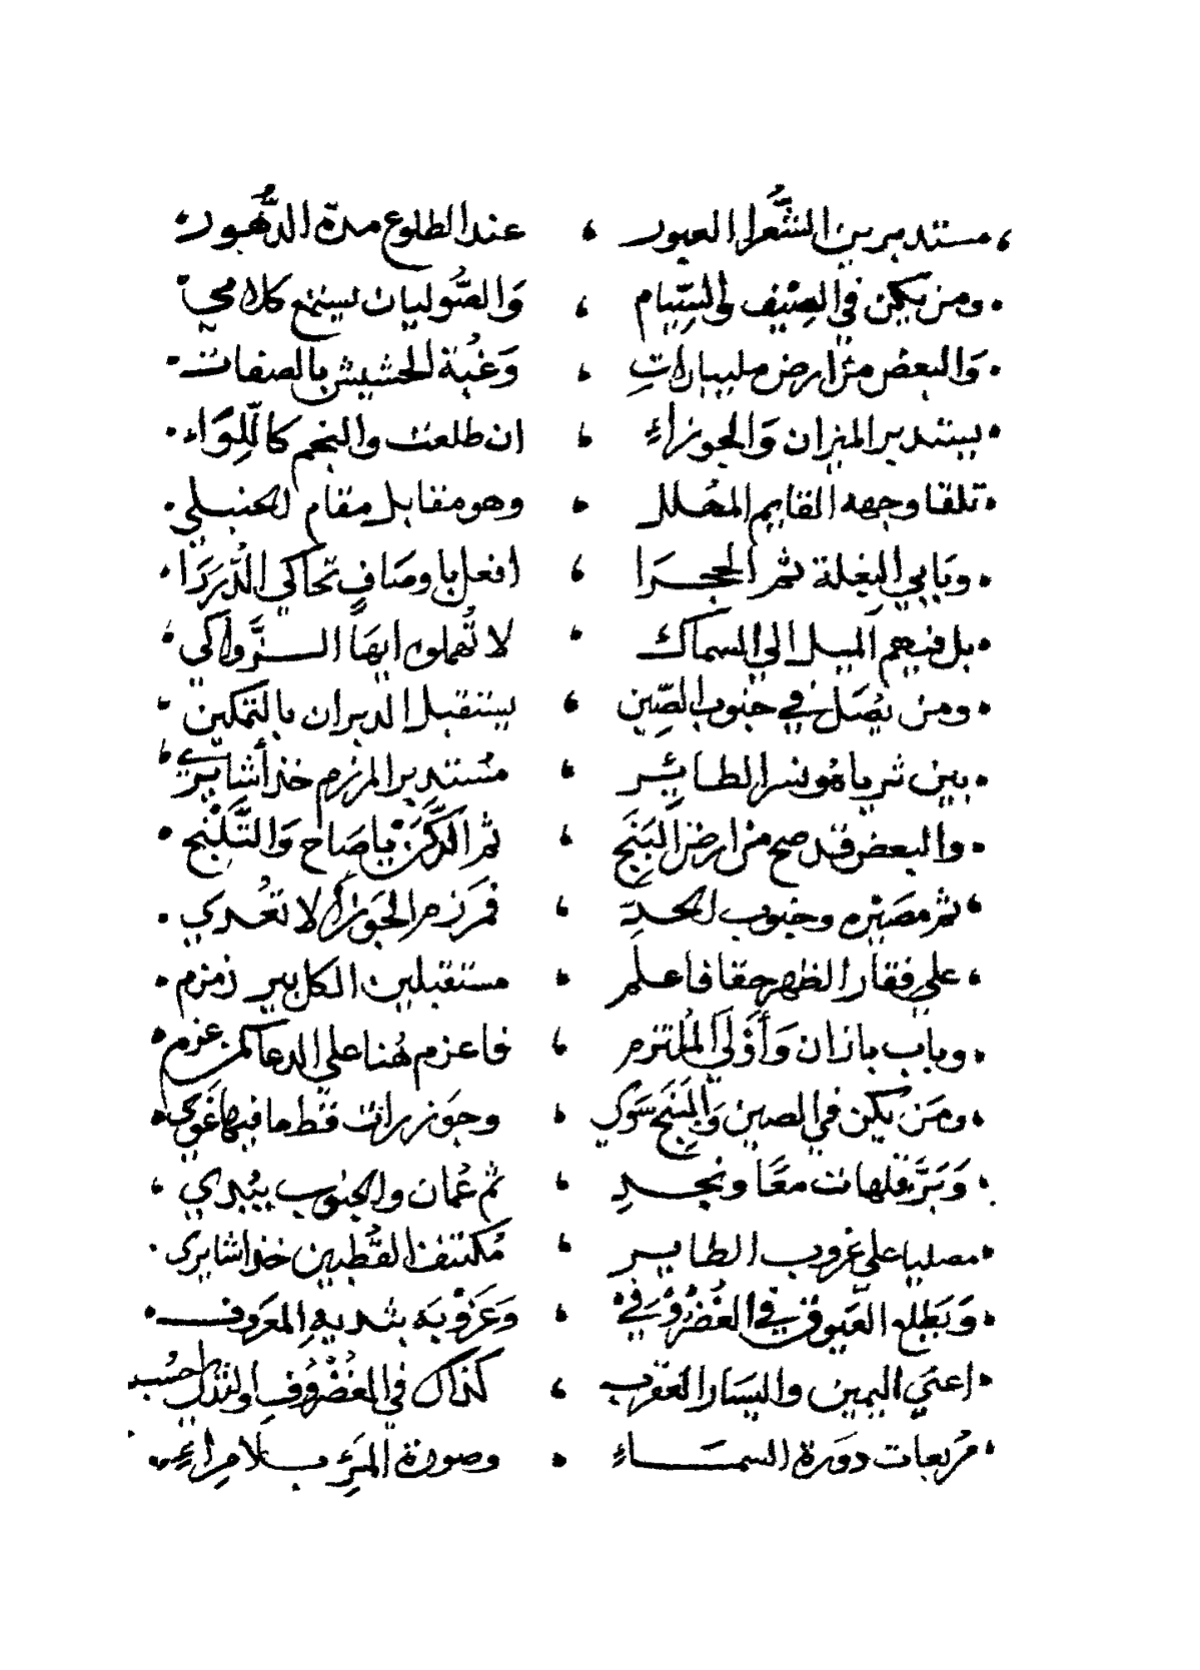 مستدبرين الشِّعرا العبور ، عند الطلوع مدة الدُّهور
ومن يكن في الصيف والسيام ، والصُّوليات يستمع كلامي
والبعض من ارض مليبارات ، وغُبة الحشيش بالصفات
يستدبر الميزان والجوزاءِ ، ان طلعت والنجم كاللِّواء
تلقا وجهه القايم المهلل ، وهو مقابل مقام الحنبلي
وبابي البغلة ثم الحجرا ، افعل باوصافٍ تحاكي الدُّررا
بل فيهم الميل الي السماك ، لا تُهملوه ايها الزواكي
ومن يُصَل في جنوب الصِّين ، يستقبل الدبران بالتمكين
بين ثرياه ونسر الطائر ، مستدبر المرزم خذ أشايري
والبعض قد صح من ارض البَنجِ ، ثم الدَّكَن يا صاح والتَّلَنْجِ
ثم مصيره وجنوب الحدة ، فمرزم الجوزا لا تعُدي
علي فقار الظهر حقا فاعلم ، مستقبلين الكل بير زمزم
وباب بازان وأولَى الملتزم ، فاعزم هُنا على الدعا كمن عزم
ومن يكن في الصين والمَنِج سَوي ، وجوزرات قط ما فيها غوي
وبَرَّ فلهات معًا ونجدِ ، ثم عُمان والجنوب يبُدي
مصليا على غروب الطاير ، مكتنف القُطبين خذ اشايري
ويَطلع العيوق في الغُضْروف ، وغَزوُ به بثديهِ المعروف
اعني اليمين واليسار العقرب ، كذاك في الغُضْروُفِ او لثدي احسب
مُربعات دَورة السماءِ ، وصورة المرءِ بلا مِراءِ